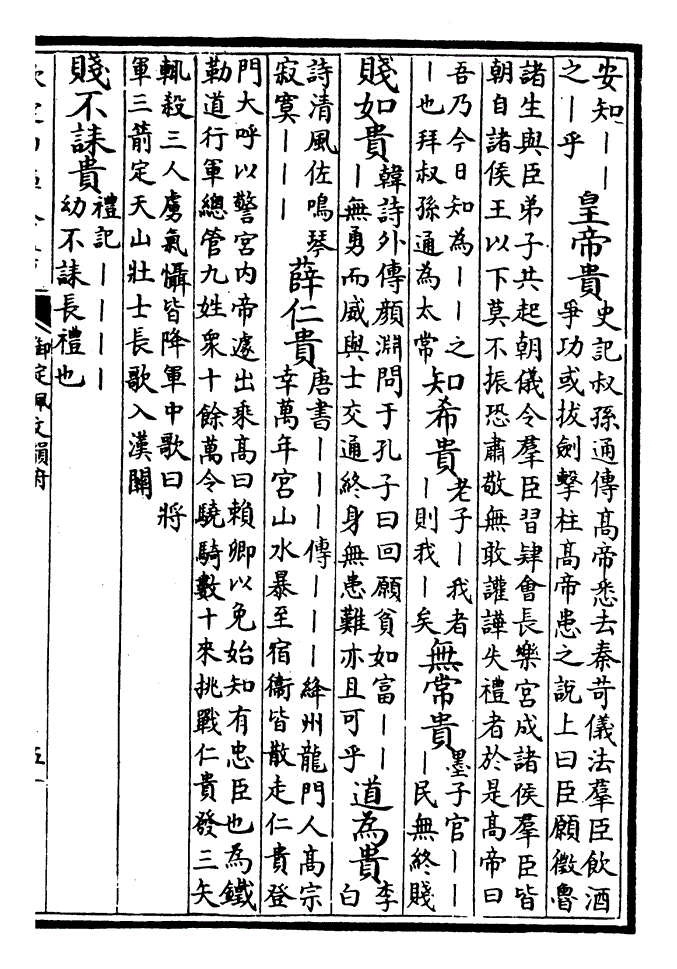 安知丨丨
之丨乎
皇帝貴
史記叔孫通傳高帝悉去秦苛儀法羣臣飲酒
爭功或拔劍擊柱高帝患之說上曰臣願徵魯
諸生與臣弟子共起朝儀令羣臣習肄會長樂宮成諸侯羣臣皆
朝自諸侯王以下莫不振恐肅敬無敢讙譁失禮者於是高帝曰
吾乃今日知為丨丨之
丨也拜叔孫通為太常
知希貴
老子丨我者
丨則我丨矣
無常貴
墨子官丨丨
丨民無終賤
賤如貴
韓詩外傳顏淵問于孔子曰回願貧如富丨丨
丨無勇而威與士交通終身無患難亦且可乎
道為貴
李
白
詩清風佐鳴琴
寂寞丨丨丨
薛仁貴
唐書丨丨丨傳丨丨丨絳州龍門人高宗
幸萬年宮山水暴至宿衛皆散走仁貴登
門大呼以警宮内帝遽出乘高曰賴卿以免始知有忠臣也為鐵
勒道行軍總管九姓衆十餘萬令驍騎數十來挑戰仁貴發三矢
輒殺三人虜氣懾皆降軍中歌曰將
軍三箭定天山壯士長歌入漢關
賤不誄貴
禮記丨丨丨丨
幼不誄長禮也
御定佩文韻府